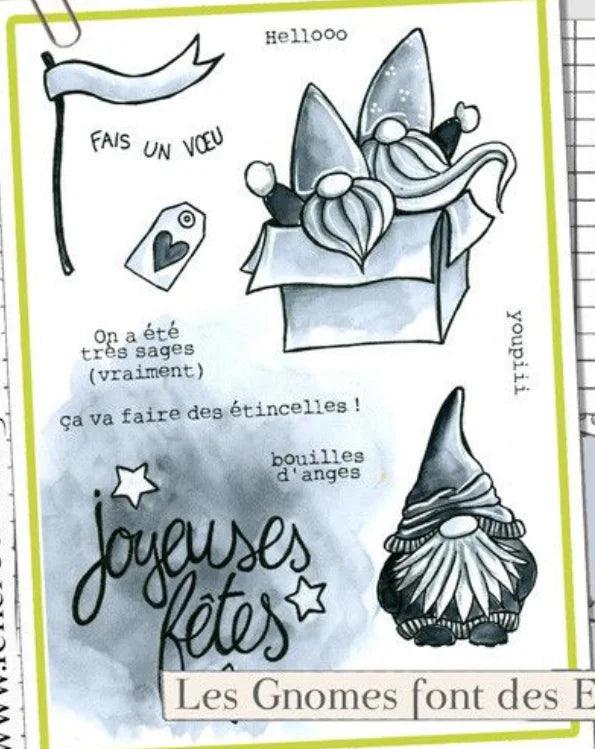 Hellooo
FAIS UN VŒU
Youpiii
On a été
très sages
(vraiment)
ça va faire des étincelles !
bouilles
d'anges
joyeuses
fêtes
Les Gnomes font des